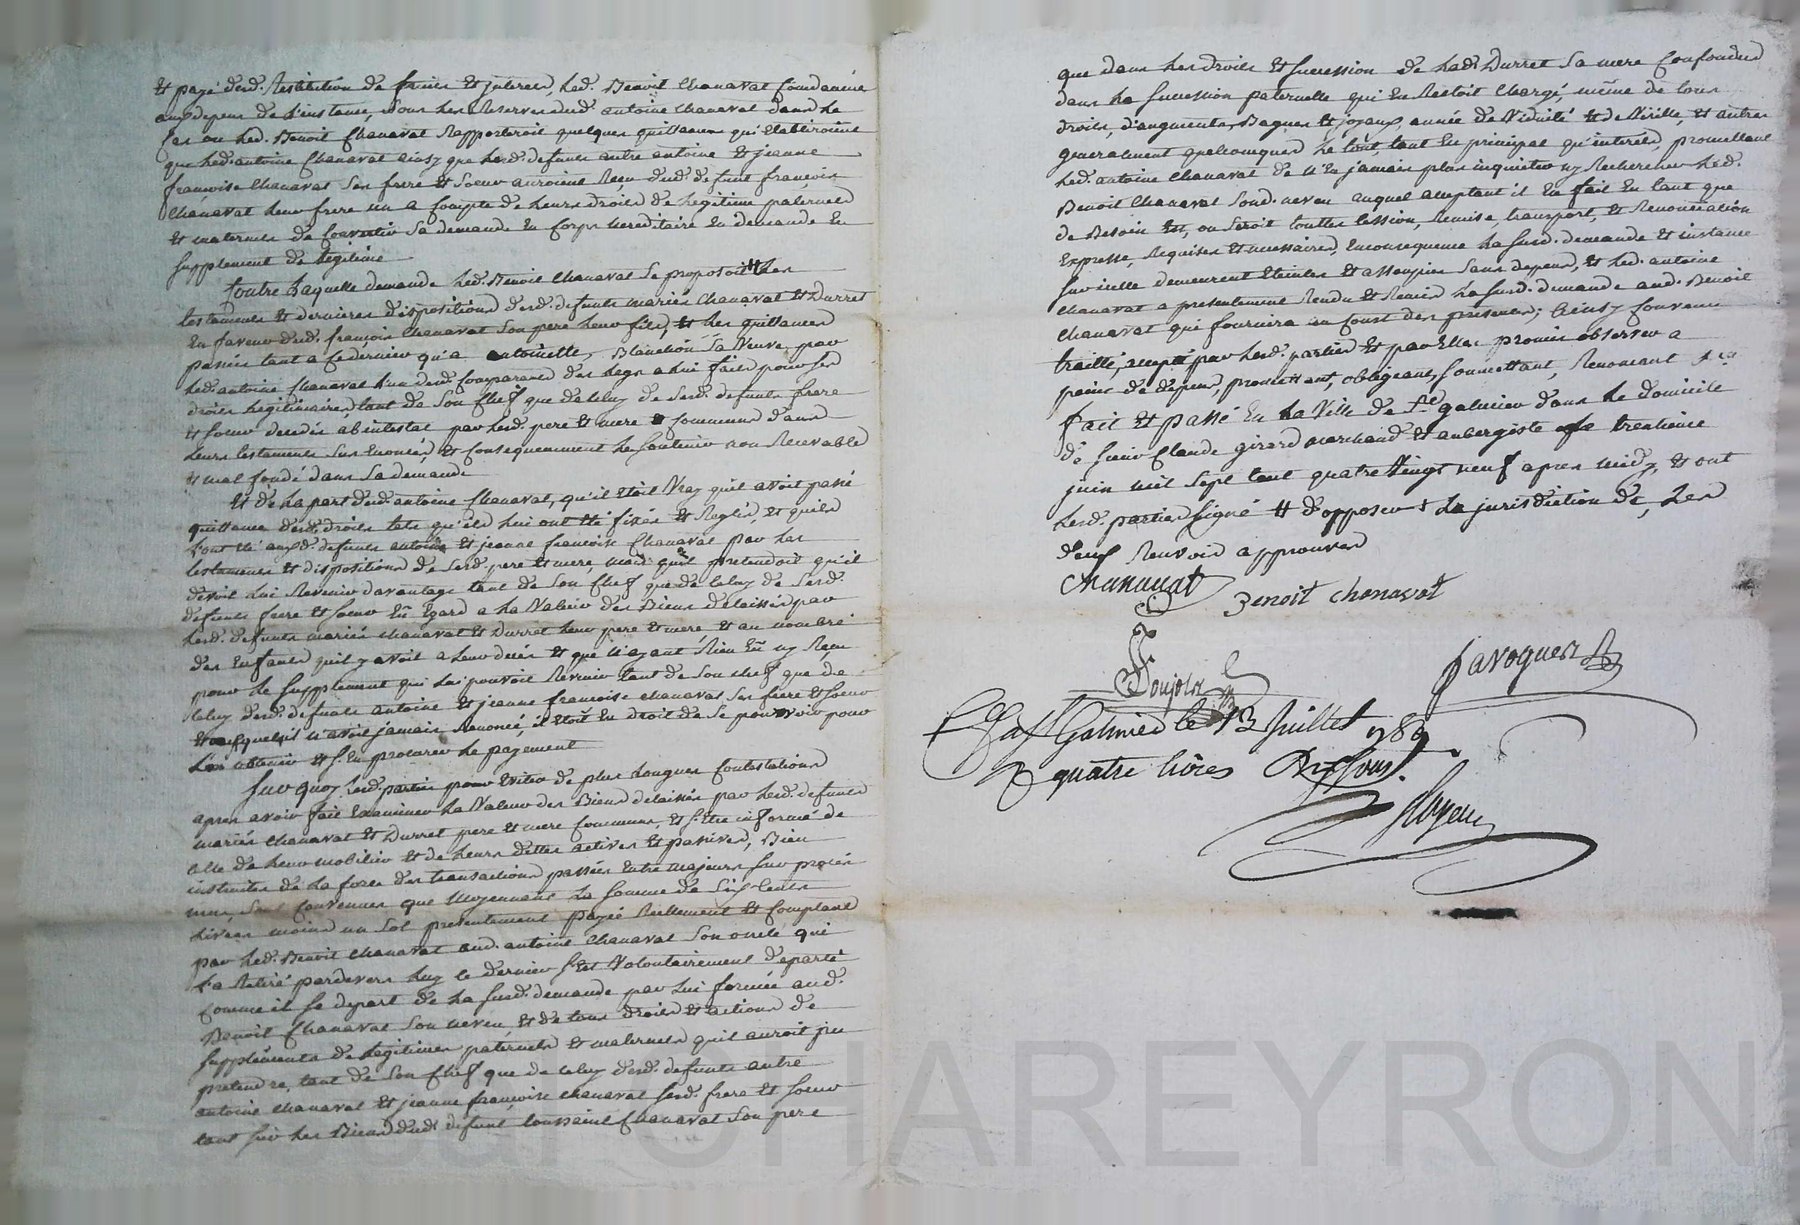 Et payé desd. Restitution de fruits Et interets, led. Benoit Chanavat Condamné
aux depens de L'instance, sous les Reserves dud. antoine chanavat dans le
Cas ou led. Benoit Chanavat Rapporteroit quelques quittances qui Etabliroient
que led. antoine Chanavat ainsy que lesd. defunts autre antoine Et jeanne
françoise Chanavat Son frere Et Soeur auroient Reçu dud. defunt françois
Chanavat leur frere un a Compte de leurs droits de legitime paternels
Et maternels de Convertir Sa demande En Corps hereditaire En demande En
Supplement de legitime
Contre laquelle demande led. Benoit Chanavat Se proposoit # les
testaments Et dernieres dispositions desd. defunts mariés Chanavat Et Durret
En faveur dud. françois Chanavat Son pere leur fils, Et les quittances
passées tant a Ce dernier qu'a antoinette Blanchon Sa Veuve par
led. antoine Chanavat l'un desd. Comparants des legs a lui faits pour Ses
droits legitimaires, tant de Son Chef que de Celuy de Sesd. defunts frere
Et Soeur decedés abintestat par lesd. pere Et mere Communs dans
leurs testaments Sus Enoncés, Et Consequemment le Soutenir non Recevable
Et mal fondé dans Sa demande
Et de la part dud. antoine Chanavat, qu'il Etoit Vray qu'il avoit passé
quittance desd. droits tels qu'ils lui ont Eté fixés Et Reglés, Et qu'ils
l'ont Eté auxd. defunts antoine Et jeanne françoise Chanavat par les
testaments Et dispositions de Sesd. pere Et mere, mais qu'il pretendoit qu'il
devoit Lui Revenir davantage tant de Son Chef que de Celuy de Sesd.
defunts frere Et Soeur Eu Egard a la Valeur des Biens delaissés par
lesd. defunts mariés Chanavat Et Durret leur pere Et mere Et au nombre
des Enfants qu'il y avoit a leur decés Et que n'ayant Rien Eu ny Reçu
pour le Supplement qui Lui pouvoit Revenir tant de Son Chef que de
Celuy desd. defunts antoine Et jeanne françoise Chanavat Ses frere Et Soeur
Et auxquels il n'avoit jamais Renoncé, il Etoit En droit de Se pourvoir pour
Les obtenir Et S'En procurer le payement
Sur quoy lesd. parties pour Eviter de plus longues Contestations
apres avoir fait Examiner la Valeur des Biens delaissés par lesd. defunts
mariés Chanavat Et Durret pere Et mere Communs, Et S'etre informé de
Celle de leur mobilier Et de leurs dettes actives Et passives, Bien
instruites de la force des transactions passées Entre majeurs Sur procés
mus, Sont Convenues que Moyennant La Somme de Six Cents
livres moins un Sol presentement payée Reellement Et Comptant
par led. Benoit Chanavat aud. antoine Chanavat Son oncle qui
l'a Retiré pardevers luy Ce dernier S'est Volontairement departi
Comme il Se depart de la Susd. demande par Lui formée aud.
Benoit Chanavat Son neveu Et de tous droits Et actions de
Supplements de legitimes paternels Et maternels qu'il auroit pu
pretendre, tant de Son Chef que de Celuy desd. defunts autre
antoine Chanavat Et jeanne françoise Chanavat Sesd. frere Et Soeur
tant Sur les Biens dud. defunt toussaint Chanavat Son pere
que dans les droits Et Succession de lad. Durret Sa mere Confondus
dans la Succession paternelle qui En Restoit Chargé, même de tous
droits, d'augments, Bagues Et joyaux, année de Viduité Et de Vieille, Et autres
generalement quelconques le tout, tant En principal qu'interets, promettant
led. antoine Chanavat de n'En jamais plus inquieter ny Rechercher led.
Benoit Chanavat Sond. neveu auquel acceptant il En fait En tant que
de Besoin Est, ou Seroit touttes Cession, Remise transport, Et Renonciation
Expresse, Requises Et necessaires, Enconsequence la Susd. demande Et instance
Sur icelle demeurent Eteintes Et assoupies Sans depens, Et led. antoine
Chanavat a presentement Rendu Et Remis la Susd. demande aud. Benoit
Chanavat qui fournira au Coust des presentes; Ainsy Convenu
traitté, accepté par lesd. parties Et par Elles promis observer a
peine de depens, promettant, obligeant, Soumettant, Renonçant &ca
fait Et passé En La Ville de St. galmier dans le domicile
de Sieur Claude girard marchand Et aubergiste le trentieme
juin mil Sept Cent quatre Vingt neuf apres midy, Et ont
lesd. parties Signé # d'opposer + La jurisdiction de, Les
deux Renvois approuvés
Chanavat
Benoit Chanavat
Poujolx
Javogues
Cllé a St Galmier le 13 Juillet 1789.
R quatre livres dix sous.
Royeu
CHAREYRON